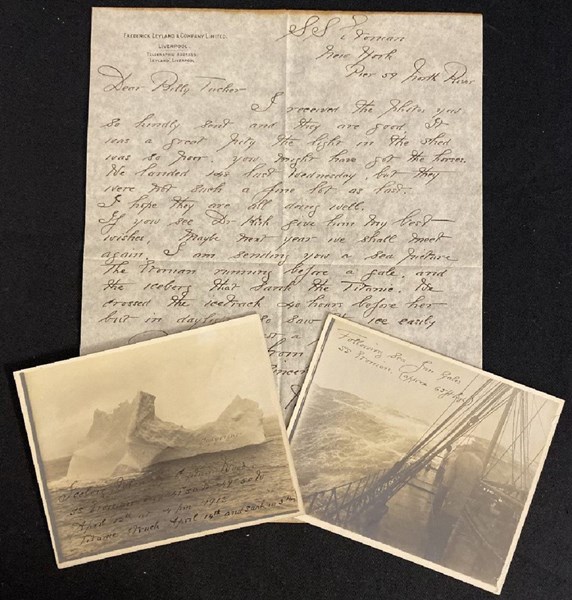 FREDERICK LEYLAND & COMPANY LIMITED.
LIVERPOOL.
TELEGRAPHIC ADDRESS:
LEYLAND, LIVERPOOL.
SS Etonian
New York
Pier 59 North River
Dear Billy Tucker
I received the photos you
so kindly sent and they are good. It
was a great pity the light in the shed
was so poor. you might have got the horses.
We landed last Wednesday but they
were not such a fine lot as last.
I hope they are all doing well.
If you see Dr Kirk give him my best
wishes, Maybe next year we shall meet
again. I am sending you a sea picture
The Etonian running before a gale, and
the iceberg that sank the Titanic. We
crossed the ice track 40 hours before her
but in so saw the ice easily
a
from
Iceberg taken by Capt
SS Etonian
April 12th 1912
Titanic Struck April 14th and sank in 3 hrs
Following Sea Gale
SS Etonian